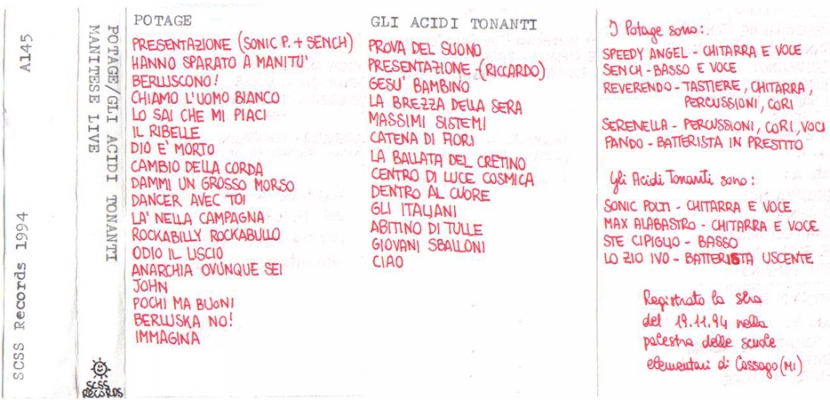 A145
SCSS Records 1994
POTAGE/GLI ACIDI TONANTI
MANITESE LIVE
SCSS
RECORDS
POTAGE
PRESENTAZIONE (SONIC P. + SENCH)
HANNO SPARATO A MANITU'
BERLUSCONO!
CHIAMO L'UOMO BIANCO
LO SAI CHE MI PIACI
IL RIBELLE
DIO E' MORTO
CAMBIO DELLA CORDA
DAMMI UN GROSSO MORSO
DANCER AVEC TOI
LA' NELLA CAMPAGNA
ROCKABILLY ROCKABULLO
ODIO IL LISCIO
ANARCHIA OVUNQUE SEI
JOHN
POCHI MA BUONI
BERLUSKA NO!
IMMAGINA
GLI ACIDI TONANTI
PROVA DEL SUONO
PRESENTAZIONE (RICCARDO)
GESU' BAMBINO
LA BREZZA DELLA SERA
MASSIMI SISTEMI
CATENA DI FIORI
LA BALLATA DEL CRETINO
CENTRO DI LUCE COSMICA
DENTRO AL CUORE
GLI ITALIANI
ABITINO DI TULLE
GIOVANI SBALLONI
CIAO
I Potage sono:
SPEEDY ANGEL - CHITARRA E VOCE
SENCH - BASSO E VOCE
REVERENDO - TASTIERE, CHITARRA,
PERCUSSIONI, CORI
SERENELLA - PERCUSSIONI, CORI, VOCI
PANDO - BATTERISTA IN PRESTITO
Gli Acidi Tonanti sono:
SONIC POLTI - CHITARRA E VOCE
MAX ALABASTRO - CHITARRA E VOCE
STE CIPIGLIO - BASSO
LO ZIO IVO - BATTERISTA USCENTE
Registrato la sera
del 19.11.94 nella
palestra delle scuole
elementari di Cassago (MI)